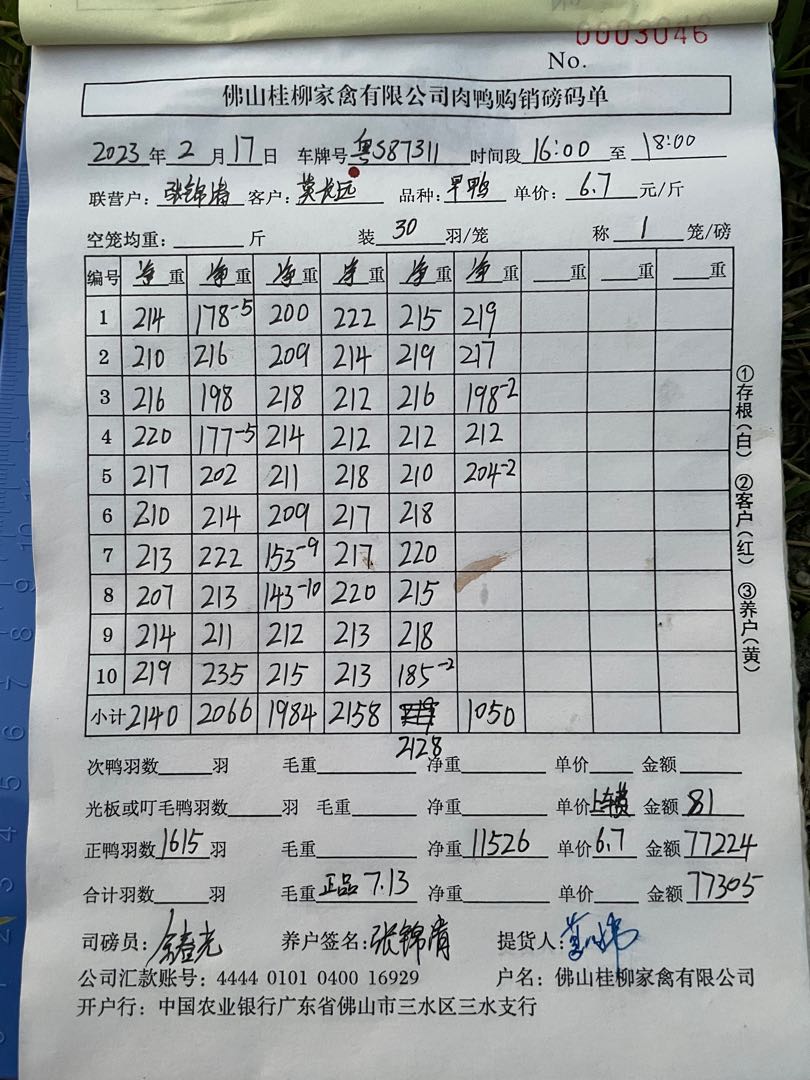 0003046
No.
佛山桂柳家禽有限公司肉鸭购销磅码单
2023年2月17日 车牌号粤S87311 时间段16:00至18:00
联营户:张锦清 客户:莫长远 品种:早鸭 单价:6.7元/斤
空笼均重: 斤 装30羽/笼 称1笼/磅
编号 净重 净重 净重 净重 净重 净重 重 重 重
1 214 178-5 200 222 215 219
2 210 216 209 214 219 217
3 216 198 218 212 216 198-2
4 220 177-5 214 212 212 212
5 217 202 211 218 210 204-2
6 210 214 209 217 218
7 213 222 153-9 217 220
8 207 213 143-10 220 215
9 214 211 212 213 218
10 219 235 215 213 185-2
小计 2140 2066 1984 2158 1050
2128
次鸭羽数 羽 毛重 净重 单价 金额
光板或叮毛鸭羽数 羽 毛重 净重 单价上车费 金额81
正鸭羽数1615羽 毛重 净重11526 单价6.7 金额77224
合计羽数 羽 毛重正品7.13 净重 单价 金额77305
司磅员:余春光 养户签名:张锦清 提货人:
公司汇款账号:4444 0101 0400 16929 户名:佛山桂柳家禽有限公司
开户行:中国农业银行广东省佛山市三水区三水支行
①存根(白) ②客户(红) ③养户(黄)